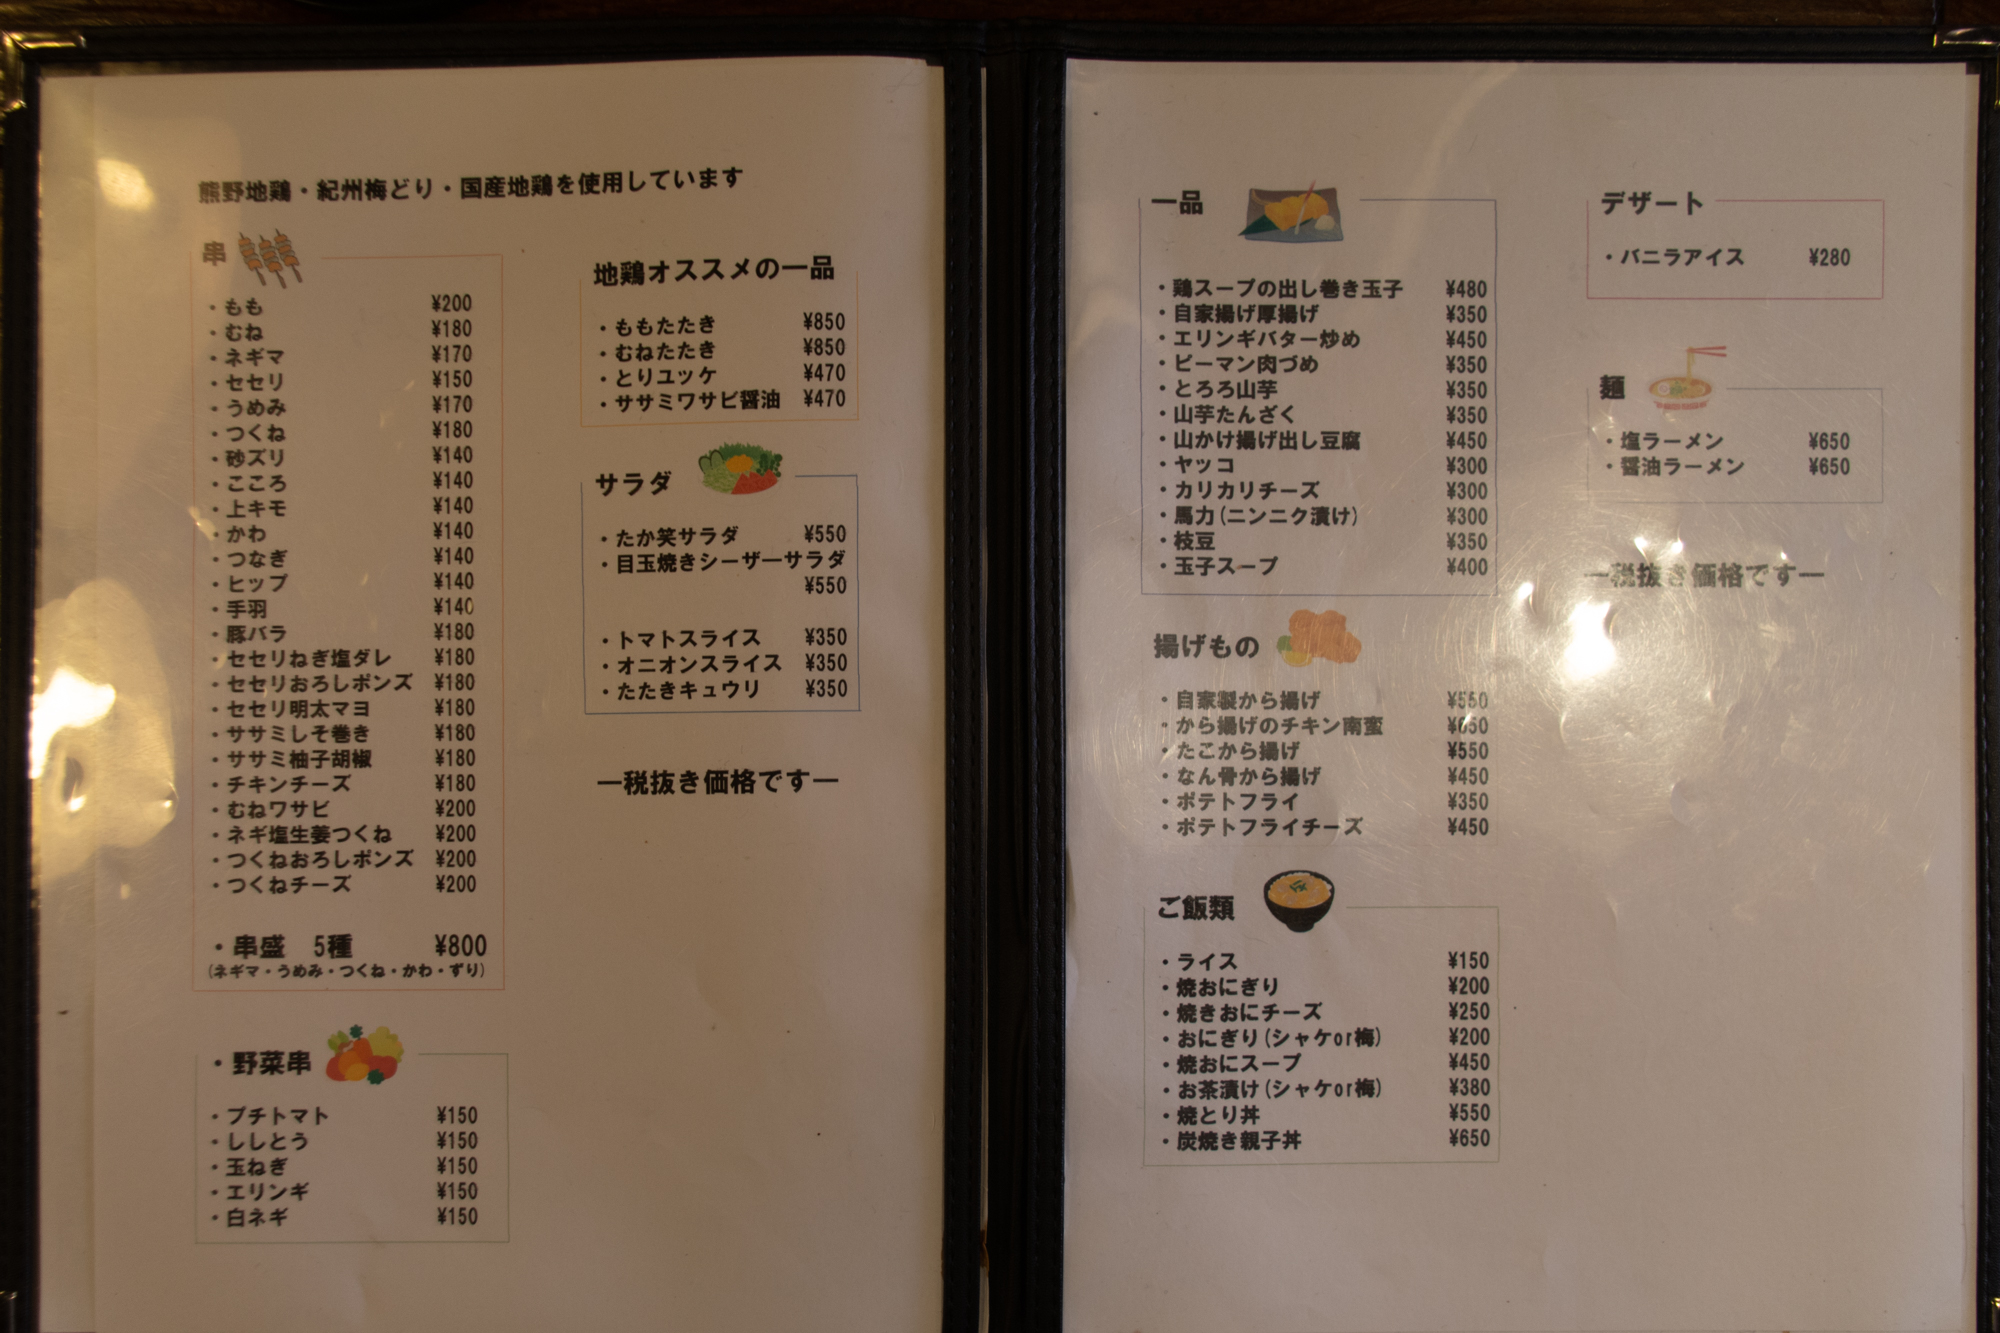 熊野地鶏・紀州梅どり・国産地鶏を使用しています
串
・もも ¥200
・むね ¥180
・ネギマ ¥170
・セセリ ¥150
・うめみ ¥170
・つくね ¥180
・砂ズリ ¥140
・こころ ¥140
・上キモ ¥140
・かわ ¥140
・つなぎ ¥140
・ヒップ ¥140
・手羽 ¥140
・豚バラ ¥180
・セセリねぎ塩ダレ ¥180
・セセリおろしポンズ ¥180
・セセリ明太マヨ ¥180
・ササミしそ巻き ¥180
・ササミ柚子胡椒 ¥180
・チキンチーズ ¥180
・むねワサビ ¥200
・ネギ塩生姜つくね ¥200
・つくねおろしポンズ ¥200
・つくねチーズ ¥200
・串盛 5種 ¥800
(ネギマ・うめみ・つくね・かわ・ずり)
・野菜串
・プチトマト ¥150
・ししとう ¥150
・玉ねぎ ¥150
・エリンギ ¥150
・白ネギ ¥150
地鶏オススメの一品
・ももたたき ¥850
・むねたたき ¥850
・とりユッケ ¥470
・ササミワサビ醤油 ¥470
サラダ
・たか笑サラダ ¥550
・目玉焼きシーザーサラダ
¥550
・トマトスライス ¥350
・オニオンスライス ¥350
・たたきキュウリ ¥350
―税抜き価格です―
一品
・鶏スープの出し巻き玉子 ¥480
・自家揚げ厚揚げ ¥350
・エリンギバター炒め ¥450
・ピーマン肉づめ ¥350
・とろろ山芋 ¥350
・山芋たんざく ¥350
・山かけ揚げ出し豆腐 ¥450
・ヤッコ ¥300
・カリカリチーズ ¥300
・馬力(ニンニク漬け) ¥300
・枝豆 ¥350
・玉子スープ ¥400
揚げもの
・自家製から揚げ ¥550
・から揚げのチキン南蛮 ¥650
・たこから揚げ ¥550
・なん骨から揚げ ¥450
・ポテトフライ ¥350
・ポテトフライチーズ ¥450
ご飯類
・ライス ¥150
・焼おにぎり ¥200
・焼きおにチーズ ¥250
・おにぎり(シャケor梅) ¥200
・焼おにスープ ¥450
・お茶漬け(シャケor梅) ¥380
・焼とり丼 ¥550
・炭焼き親子丼 ¥650
デザート
・バニラアイス ¥280
麺
・塩ラーメン ¥650
・醤油ラーメン ¥650
―税抜き価格です―